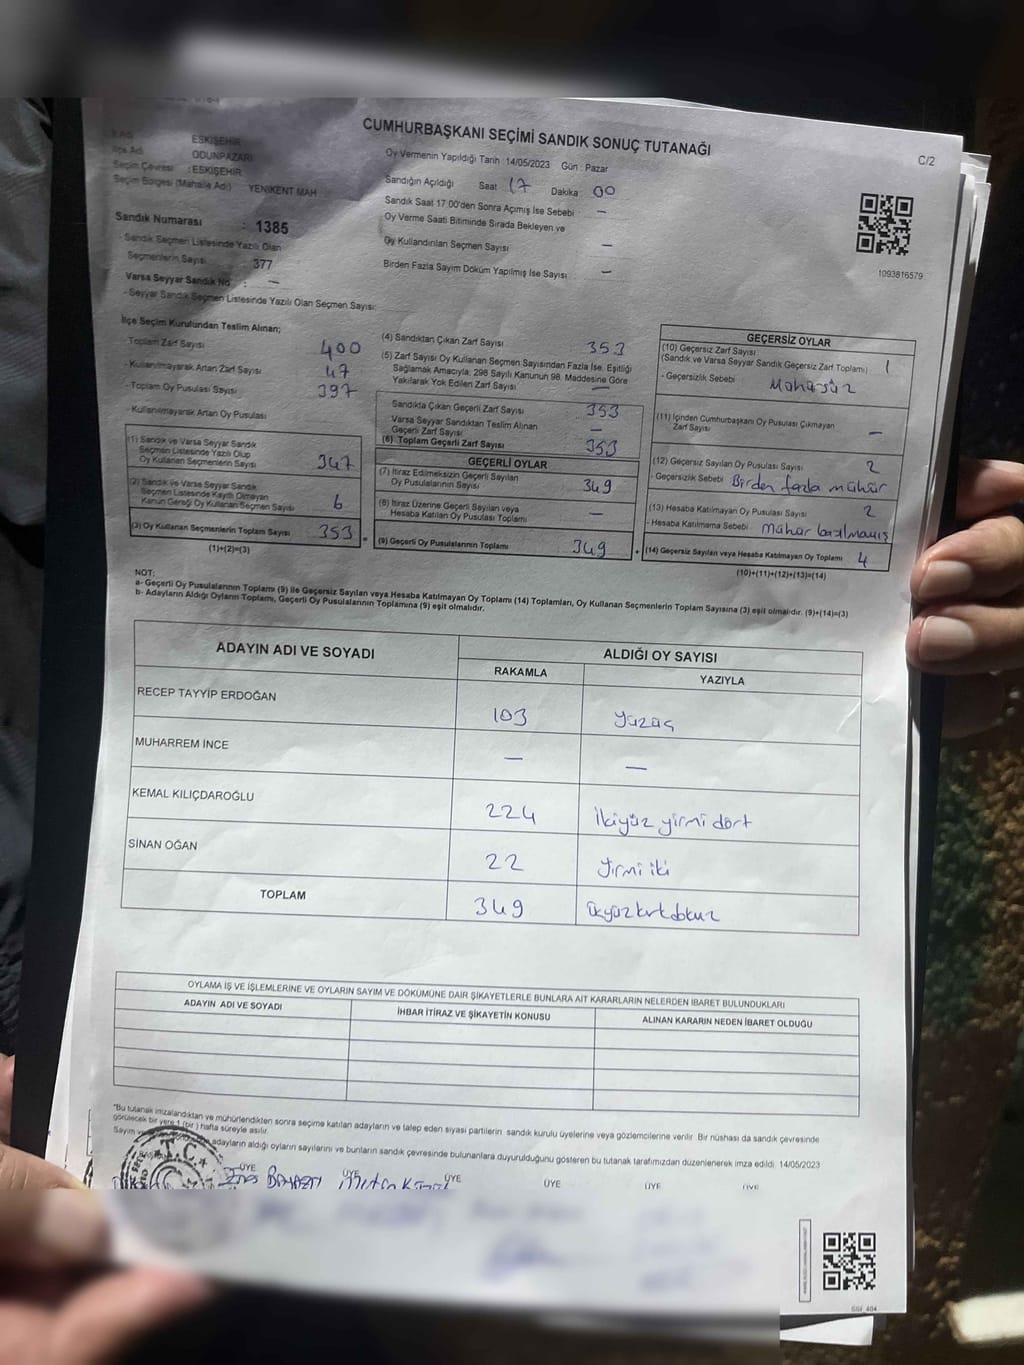 CUMHURBAŞKANI SEÇİMİ SANDIK SONUÇ TUTANAĞI
C/2
İl Adı : ESKİŞEHİR
İlçe Adı : ODUNPAZARI
Seçim Çevresi : ESKİŞEHİR
Seçim Bölgesi (Mahalle Adı) YENİKENT MAH
Sandık Numarası : 1385
- Sandık Seçmen Listesinde Yazılı Olan
Seçmenlerin Sayısı 377
Varsa Seyyar Sandık No : —
- Seyyar Sandık Seçmen Listesinde Yazılı Olan Seçmen Sayısı:
Oy Vermenin Yapıldığı Tarih : 14/05/2023 Gün : Pazar
Sandığın Açıldığı Saat 17 Dakika 00
Sandık Saat 17.00'den Sonra Açımış İse Sebebi —
Oy Verme Saati Bitiminde Sırada Bekleyen ve
Oy Kullandırılan Seçmen Sayısı —
Birden Fazla Sayım Döküm Yapılmış İse Sayısı —
1093816579
İlçe Seçim Kurulundan Teslim Alınan;
Toplam Zarf Sayısı 400
- Kullanılmayarak Artan Zarf Sayısı 47
- Toplam Oy Pusulası Sayısı 397
- Kullanılmayarak Artan Oy Pusulası
(1) Sandık ve Varsa Seyyar Sandık
Seçmen Listesinde Yazılı Olup
Oy Kullanan Seçmenlerin Sayısı 347
(2) Sandık ve Varsa Seyyar Sandık
Seçmen Listesinde Kayıtlı Olmayan
Kanun Gereği Oy Kullanan Seçmen Sayısı 6
(3) Oy Kullanan Seçmenlerin Toplam Sayısı 353
(1)+(2)=(3)
=
(4) Sandıktan Çıkan Zarf Sayısı 353
(5) Zarf Sayısı Oy Kullanan Seçmen Sayısından Fazla İse, Eşitliği
Sağlamak Amacıyla, 298 Sayılı Kanunun 98. Maddesine Göre
Yakılarak Yok Edilen Zarf Sayısı —
Sandıkta Çıkan Geçerli Zarf Sayısı 353
Varsa Seyyar Sandıktan Teslim Alınan
Geçerli Zarf Sayısı —
(6) Toplam Geçerli Zarf Sayısı 353
GEÇERLİ OYLAR
(7) İtiraz Edilmeksizin Geçerli Sayılan
Oy Pusulalarının Sayısı 349
(8) İtiraz Üzerine Geçerli Sayılan veya
Hesaba Katılan Oy Pusulası Toplamı —
(9) Geçerli Oy Pusulalarının Toplamı 349
+
GEÇERSİZ OYLAR
(10) Geçersiz Zarf Sayısı
(Sandık ve Varsa Seyyar Sandık Geçersiz Zarf Toplamı) 1
- Geçersizlik Sebebi Mühürsüz
(11) İçinden Cumhurbaşkanı Oy Pusulası Çıkmayan
Zarf Sayısı —
(12) Geçersiz Sayılan Oy Pusulası Sayısı 2
- Geçersizlik Sebebi Birden fazla mühür
(13) Hesaba Katılmayan Oy Pusulası Sayısı 2
- Hesaba Katılmama Sebebi Mühür basılmamış
(14) Geçersiz Sayılan veya Hesaba Katılmayan Oy Toplamı 4
(10)+(11)+(12)+(13)=(14)
NOT:
a- Geçerli Oy Pusulalarının Toplamı (9) ile Geçersiz Sayılan veya Hesaba Katılmayan Oy Toplamı (14) Toplamları, Oy Kullanan Seçmenlerin Toplam Sayısına (3) eşit olmalıdır. (9)+(14)=(3)
b- Adayların Aldığı Oyların Toplamı, Geçerli Oy Pusulalarının Toplamına (9) eşit olmalıdır.
ADAYIN ADI VE SOYADI
ALDIĞI OY SAYISI
RAKAMLA YAZIYLA
RECEP TAYYİP ERDOĞAN 103 yüzüç
MUHARREM İNCE — —
KEMAL KILIÇDAROĞLU 224 ikiyüz yirmi dört
SİNAN OĞAN 22 yirmi iki
TOPLAM 349 üçyüzkırkdokuz
OYLAMA İŞ VE İŞLEMLERİNE VE OYLARIN SAYIM VE DÖKÜMÜNE DAİR ŞİKAYETLERLE BUNLARA AİT KARARLARIN NELERDEN İBARET BULUNDUKLARI
ADAYIN ADI VE SOYADI İHBAR İTİRAZ VE ŞİKAYETİN KONUSU ALINAN KARARIN NEDEN İBARET OLDUĞU
"Bu tutanak imzalandıktan ve mühürlendikten sonra seçime katılan adayların ve talep eden siyasi partilerin sandık kurulu üyelerine veya gözlemcilerine verilir. Bir nüshası da sandık çevresinde
görülecek bir yere 1 (bir) hafta süreyle asılır.
Sayım ve adayların aldığı oyların sayılarını ve bunların sandık çevresinde bulunanlara duyurulduğunu gösteren bu tutanak tarafımızdan düzenlenerek imza edildi. 14/05/2023
T.C.
ÜYE ÜYE ÜYE ÜYE ÜYE ÜYE